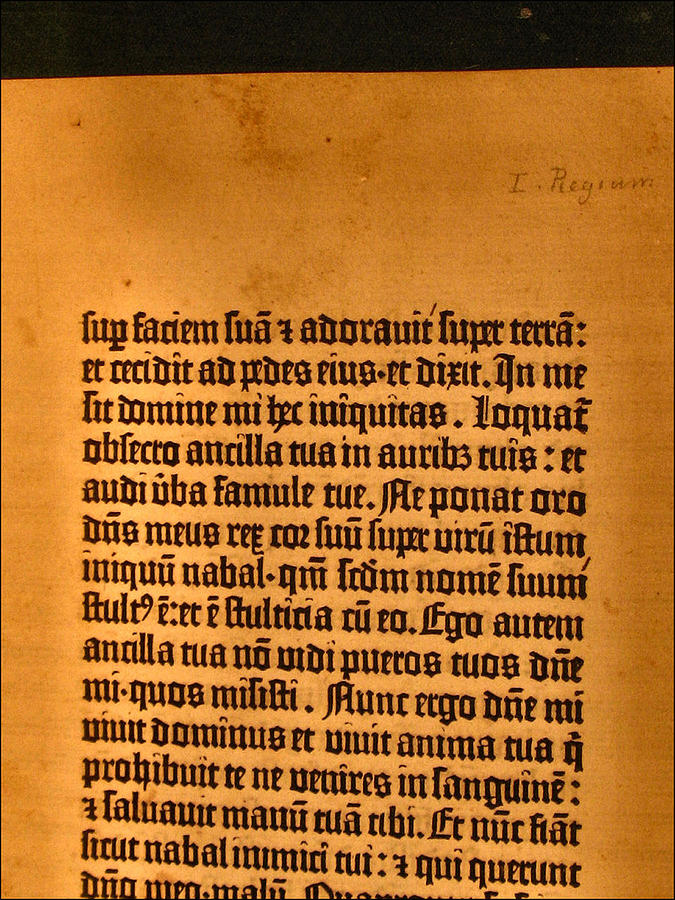 I. Regium
sup faciem suā ⁊ adorauit super terrā:
et cecidit ad pedes eius·et dixit. In me
sit domine mi hec iniquitas. Loquat᷑
obsecro ancilla tua in aurib⁊ tuis: et
audi v̄ba famule tue. Ne ponat oro
dn̄s meus rex cor suū super virū īstum
iniquū nabal·qm̄ scd̄m nomē suum
stultꝰ ē:et ē stulticia cū eo. Ego autem
ancilla tua nō vidi pueros tuos dn̄e
mi·quos misisti. Nunc ergo dn̄e mi
viuit dominus et viuit anima tua q̄
prohibuit te ne venires in sanguinē:
⁊ saluauit manū tuā tibi. Et nūc fiāt
sicut nabal inimici tui: ⁊ qui querunt
dn̄o meo·malū.